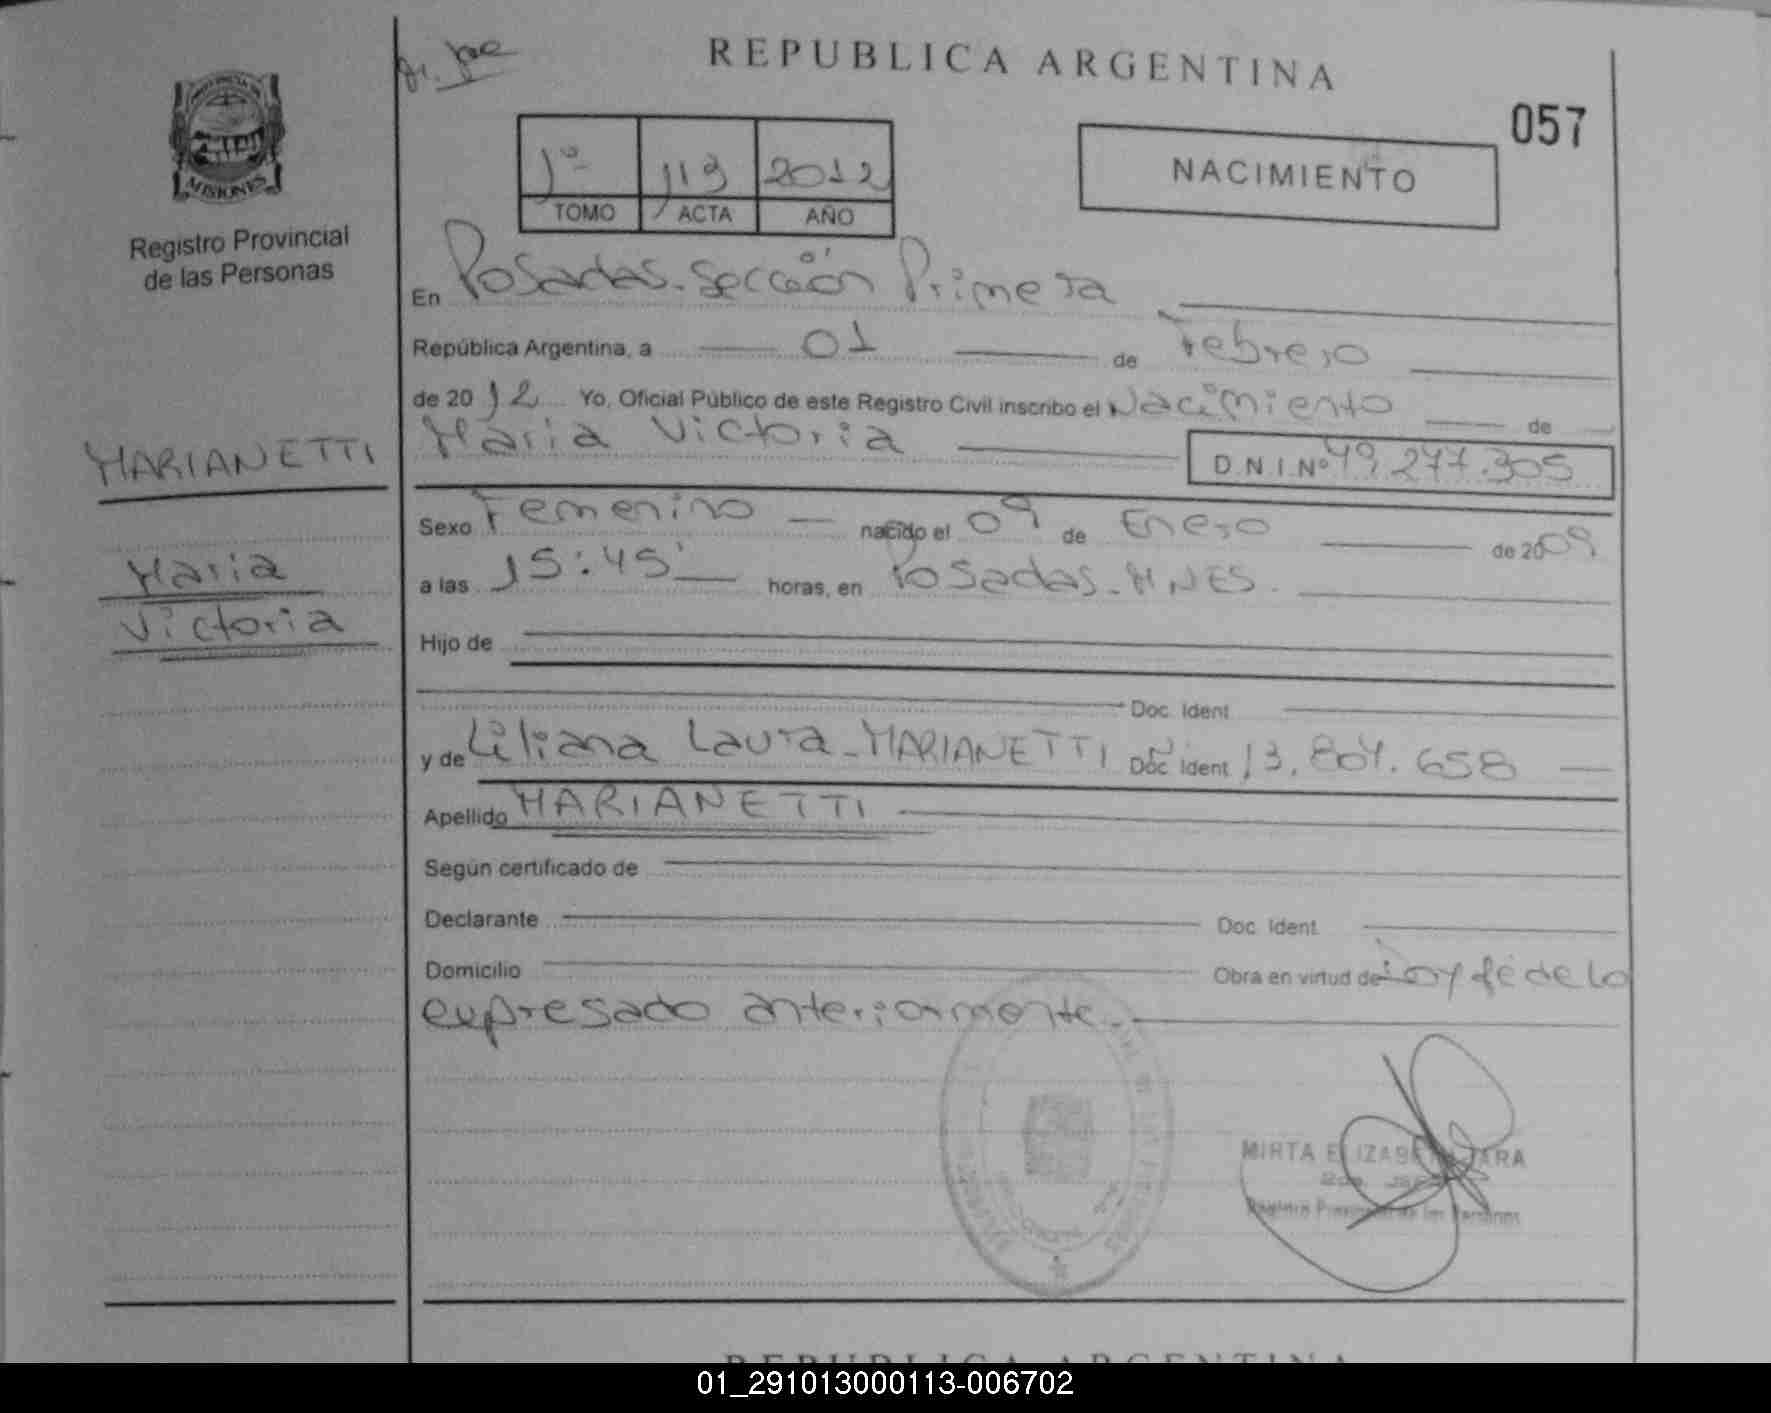 REPUBLICA ARGENTINA
057
1º 113 2012
TOMO ACTA AÑO
NACIMIENTO
MISIONES
Registro Provincial
de las Personas
En Posadas - Sección Primera
República Argentina, a 01 de Febrero
de 2012 Yo, Oficial Público de este Registro Civil inscribo el Nacimiento de
MARIANETTI
Maria Victoria D.N.I.Nº 49.277.305
Sexo Femenino nacido el 09 de Enero de 2009
Maria
Victoria
a las 15:45' horas, en Posadas - MNES.
Hijo de
Doc. Ident.
y de Liliana Laura - MARIANETTI Doc. Ident. 13.807.658
Apellido MARIANETTI
Según certificado de
Declarante Doc. Ident.
Domicilio Obra en virtud de Doy fé de lo
expresado anteriormente.
MIRTA ELIZABETH JARA
Registro Provincial de las Personas
REPUBLICA ARGENTINA
01_291013000113-006702